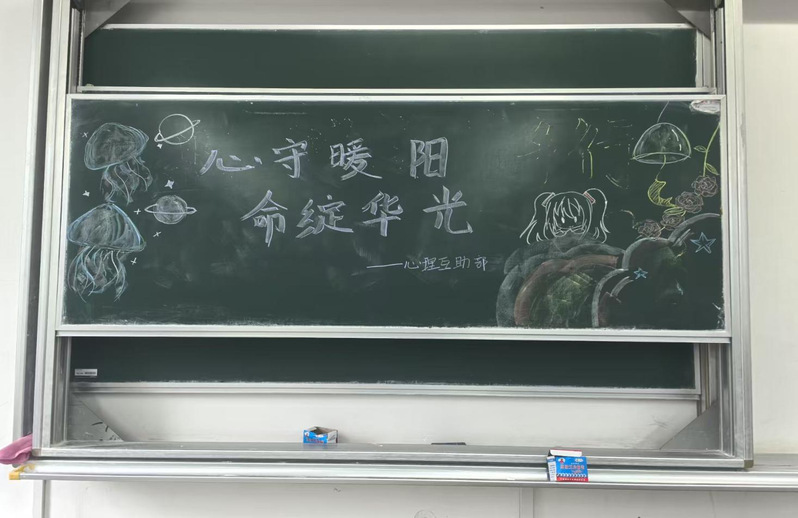 心守暖阳
命绽华光
——心理互助部